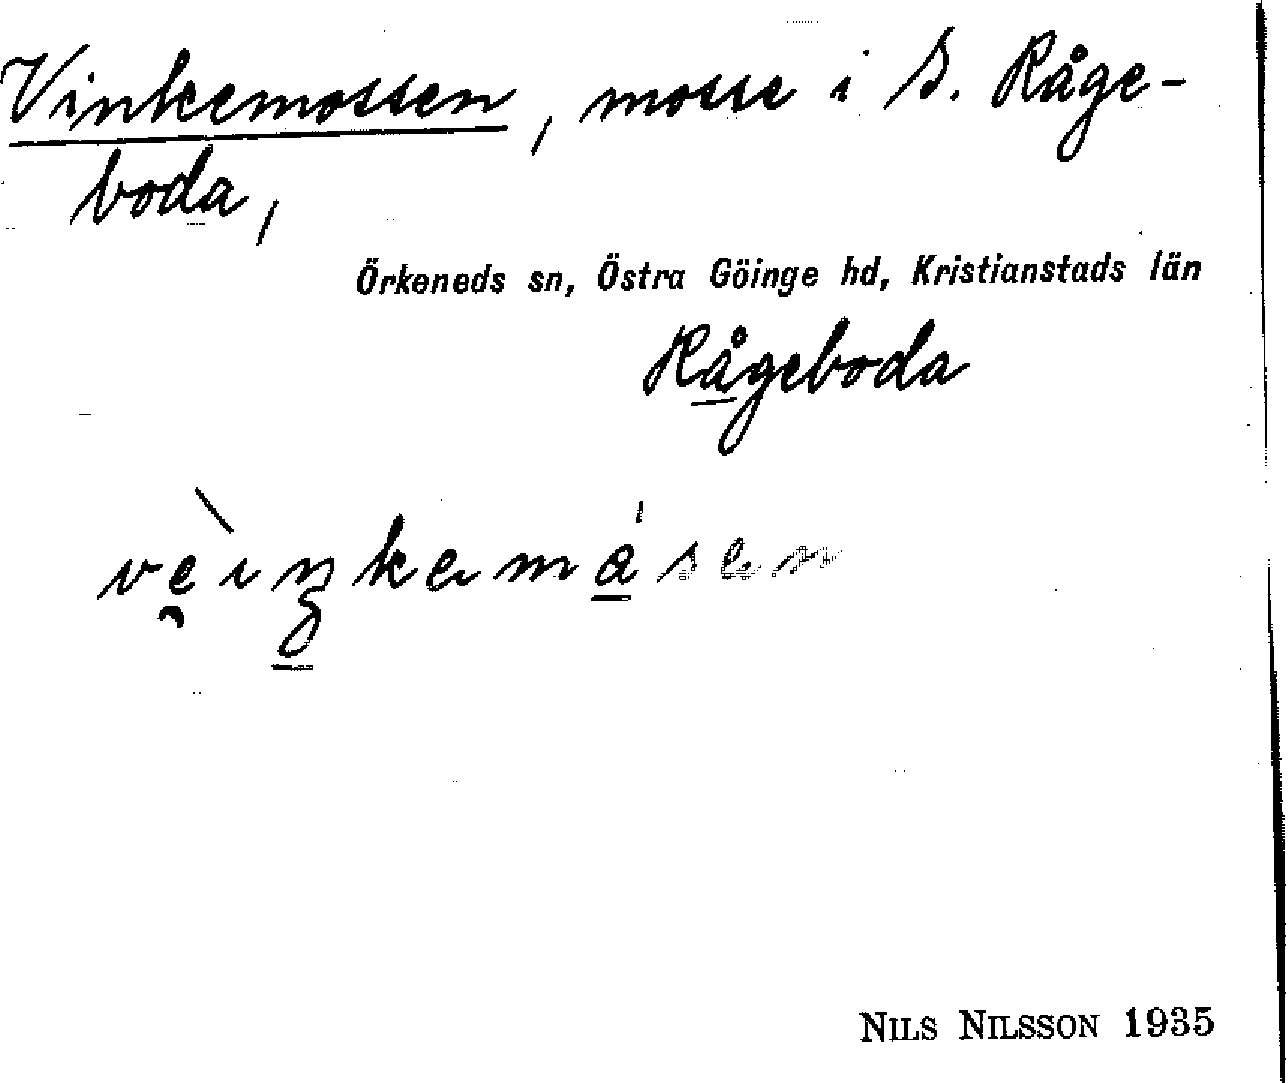 Vinkemossen, mosse i S. Råge-
boda,
Örkeneds sn, Östra Göinge hd, Kristianstads län
Rågeboda
NILS NILSSON 1935